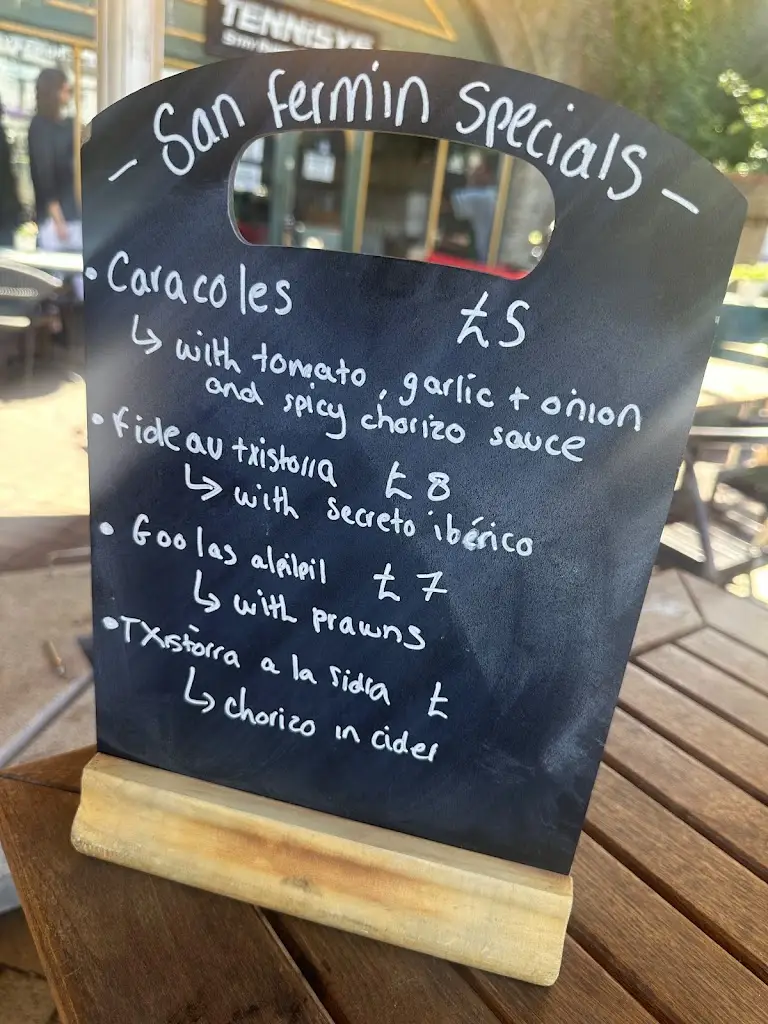 TENNiSYS
- San Fermin Specials -
• Caracoles £5
↳ with tomato, garlic + onion
and spicy chorizo sauce
• Fideau txistorra £8
↳ with secreto ibérico
• Goolas alpilpil £7
↳ with prawns
• TXistorra a la sidra £
↳ chorizo in cider